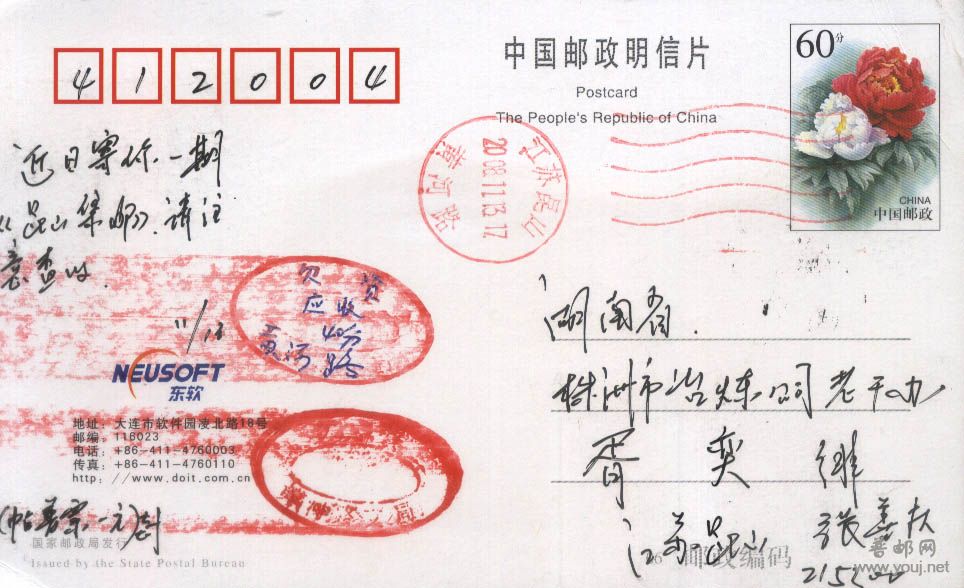 412004
中国邮政明信片
Postcard
The People's Republic of China
60分
CHINA
中国邮政
江苏昆山
2008.11.13.17
近日寄你一期
《昆山集邮》.请注
意查收.
11/13
欠资
应收
40分
黄河路
NEUSOFT
东软
地址: 大连市软件园凌北路18号
邮编: 116023
电话: +86-411-4760003
传真: +86-411-4760110
http://www.doit.com.cn
国家邮政局发行
Issued by the State Postal Bureau
湖南省.
株洲市冶炼公司老干办
胥奕继
江苏昆山
215300
邮政编码
善邮网
www.youj.net